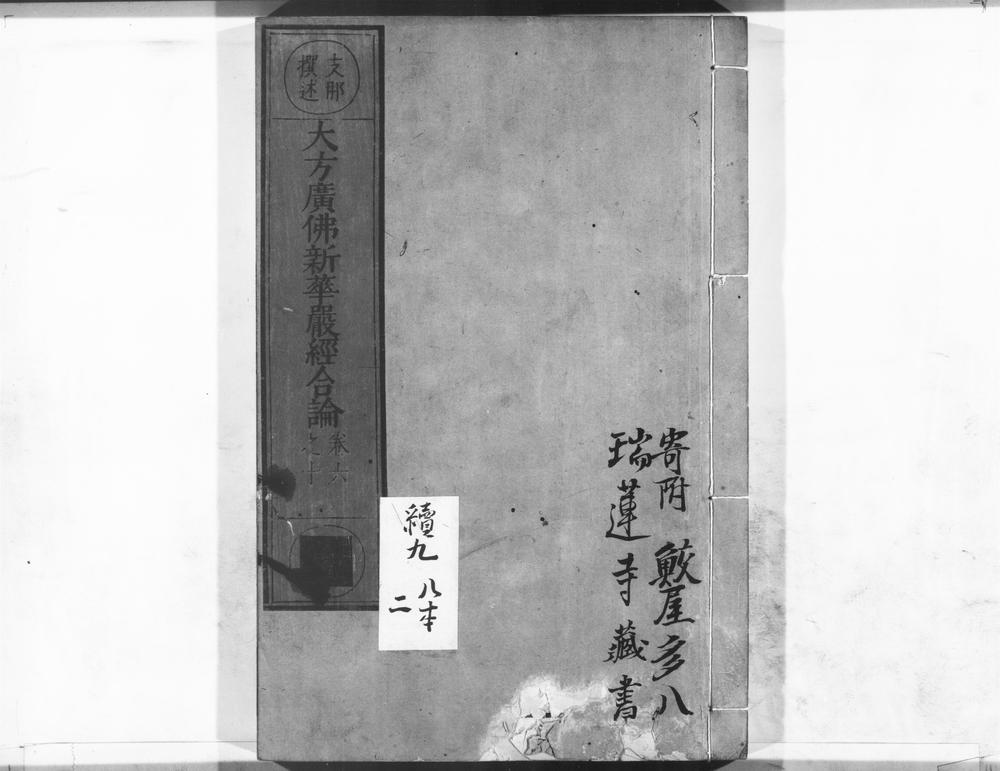 寄附 鮫屋多八
瑞蓮寺藏書
支那
撰述
大方廣佛新華嚴經合論
卷六
之十
續九
八本
二